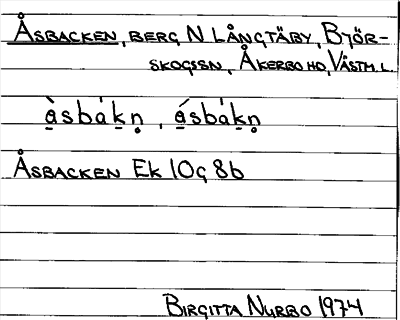 ÅSBACKEN, BERG N LÅNGTÄBY, BJÖR-
SKOGSSN, ÅKERBO HD, VÄSTM. L.
å̱̀sbáḵn̥, ǻ̱sbàḵn̥
ÅSBACKEN EK 10G 8b
BIRGITTA NURBO 1974